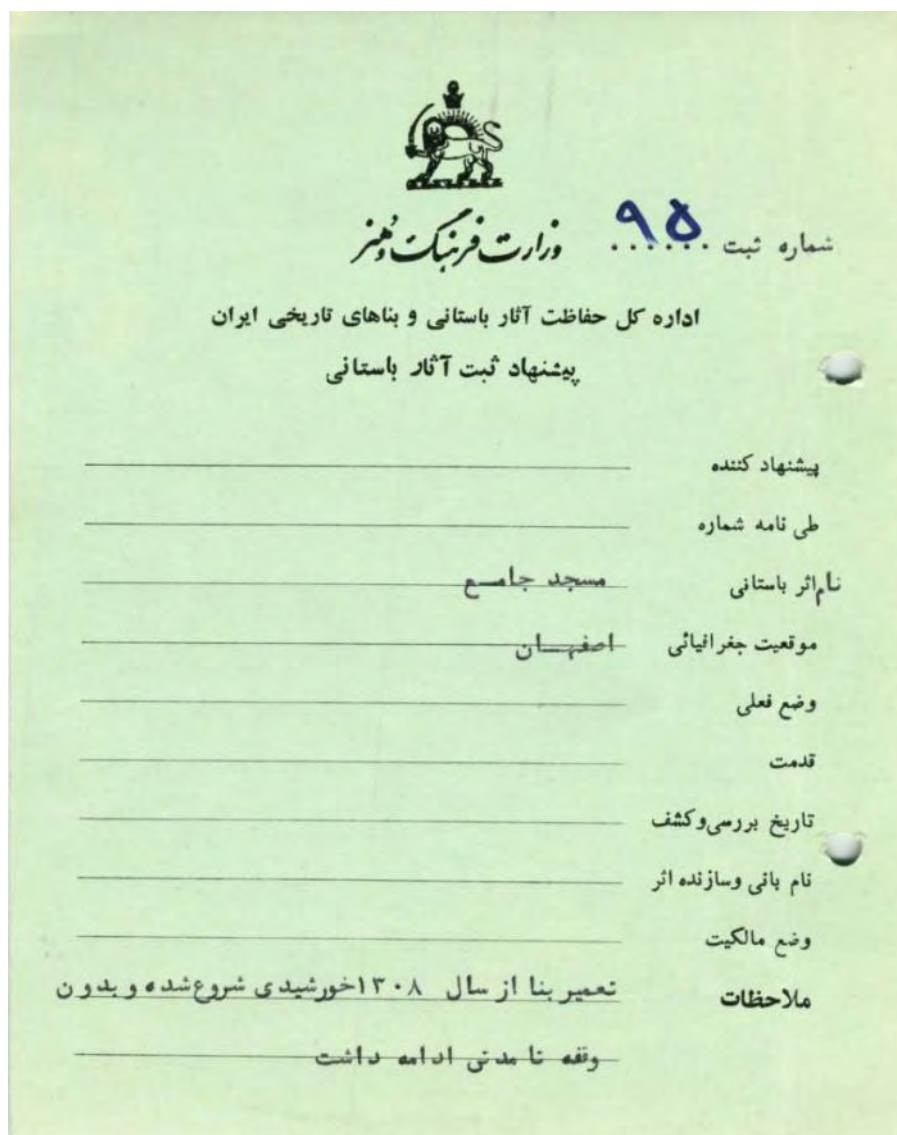 شماره ثبت ۹۵
وزارت فرهنگ و هنر
اداره کل حفاظت آثار باستانی و بناهای تاریخی ایران
پیشنهاد ثبت آثار باستانی
پیشنهاد کننده
طی نامه شماره
نام اثر باستانی مسجد جامع
موقعیت جغرافیائی اصفهان
وضع فعلی
قدمت
تاریخ بررسی و کشف
نام بانی و سازنده اثر
وضع مالکیت
ملاحظات تعمیر بنا از سال ۱۳۰۸ خورشیدی شروع شده و بدون
وقفه تا مدتی ادامه داشت